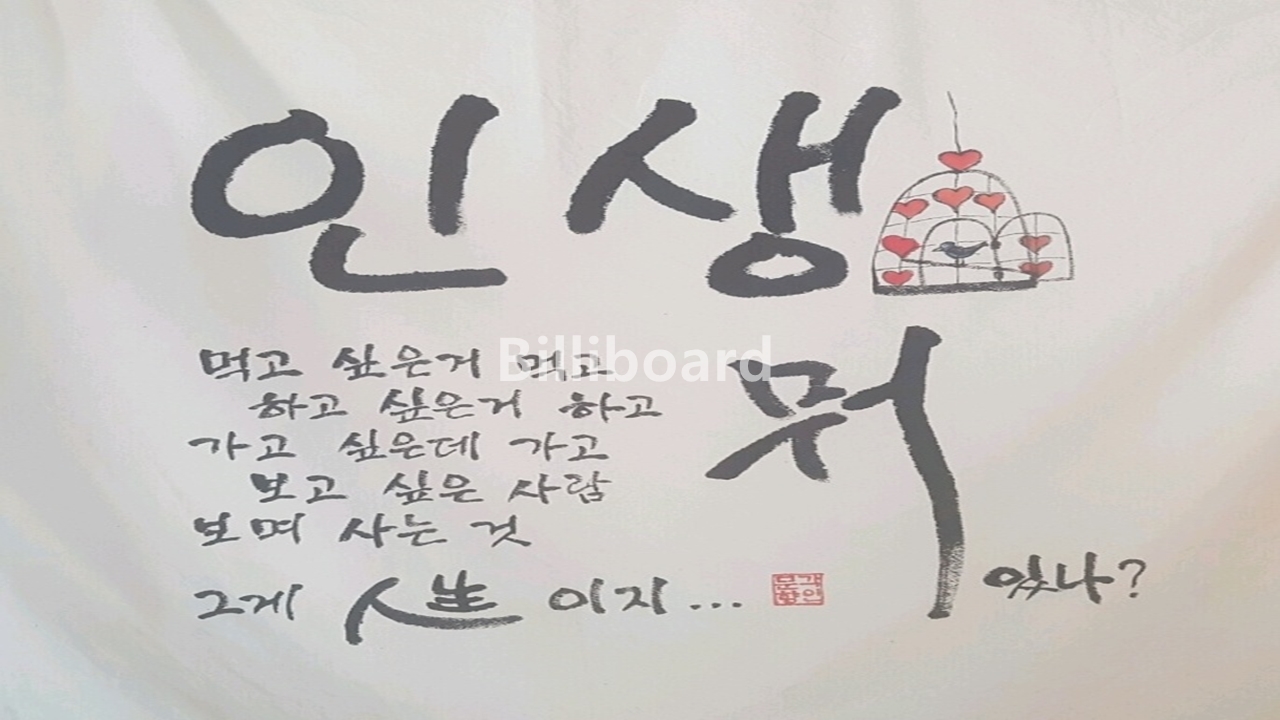 인생
뭐
있나?
먹고 싶은거 먹고
하고 싶은거 하고
가고 싶은데 가고
보고 싶은 사람
보며 사는 것
그게 人生 이지...
Billiboard